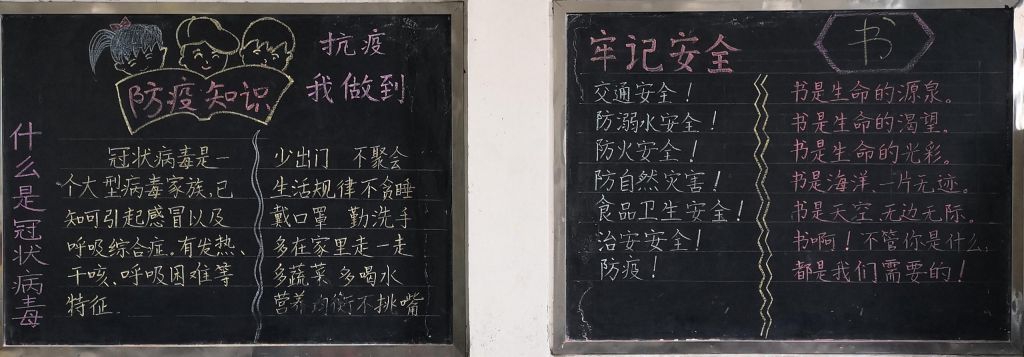 防疫知识
抗疫
我做到
什么是冠状病毒
冠状病毒是一
个大型病毒家族,已
知可引起感冒以及
呼吸综合症.有发热、
干咳、呼吸困难等
特征.
少出门 不聚会
生活规律不贪睡
戴口罩 勤洗手
多在家里走一走
多蔬菜 多喝水
营养均衡不挑嘴
牢记安全
交通安全!
防溺水安全!
防火安全!
防自然灾害!
食品卫生安全!
治安安全!
防疫!
书
书是生命的源泉。
书是生命的渴望。
书是生命的光彩。
书是海洋、一片无迹。
书是天空、无边无际。
书啊!不管你是什么,
都是我们需要的!